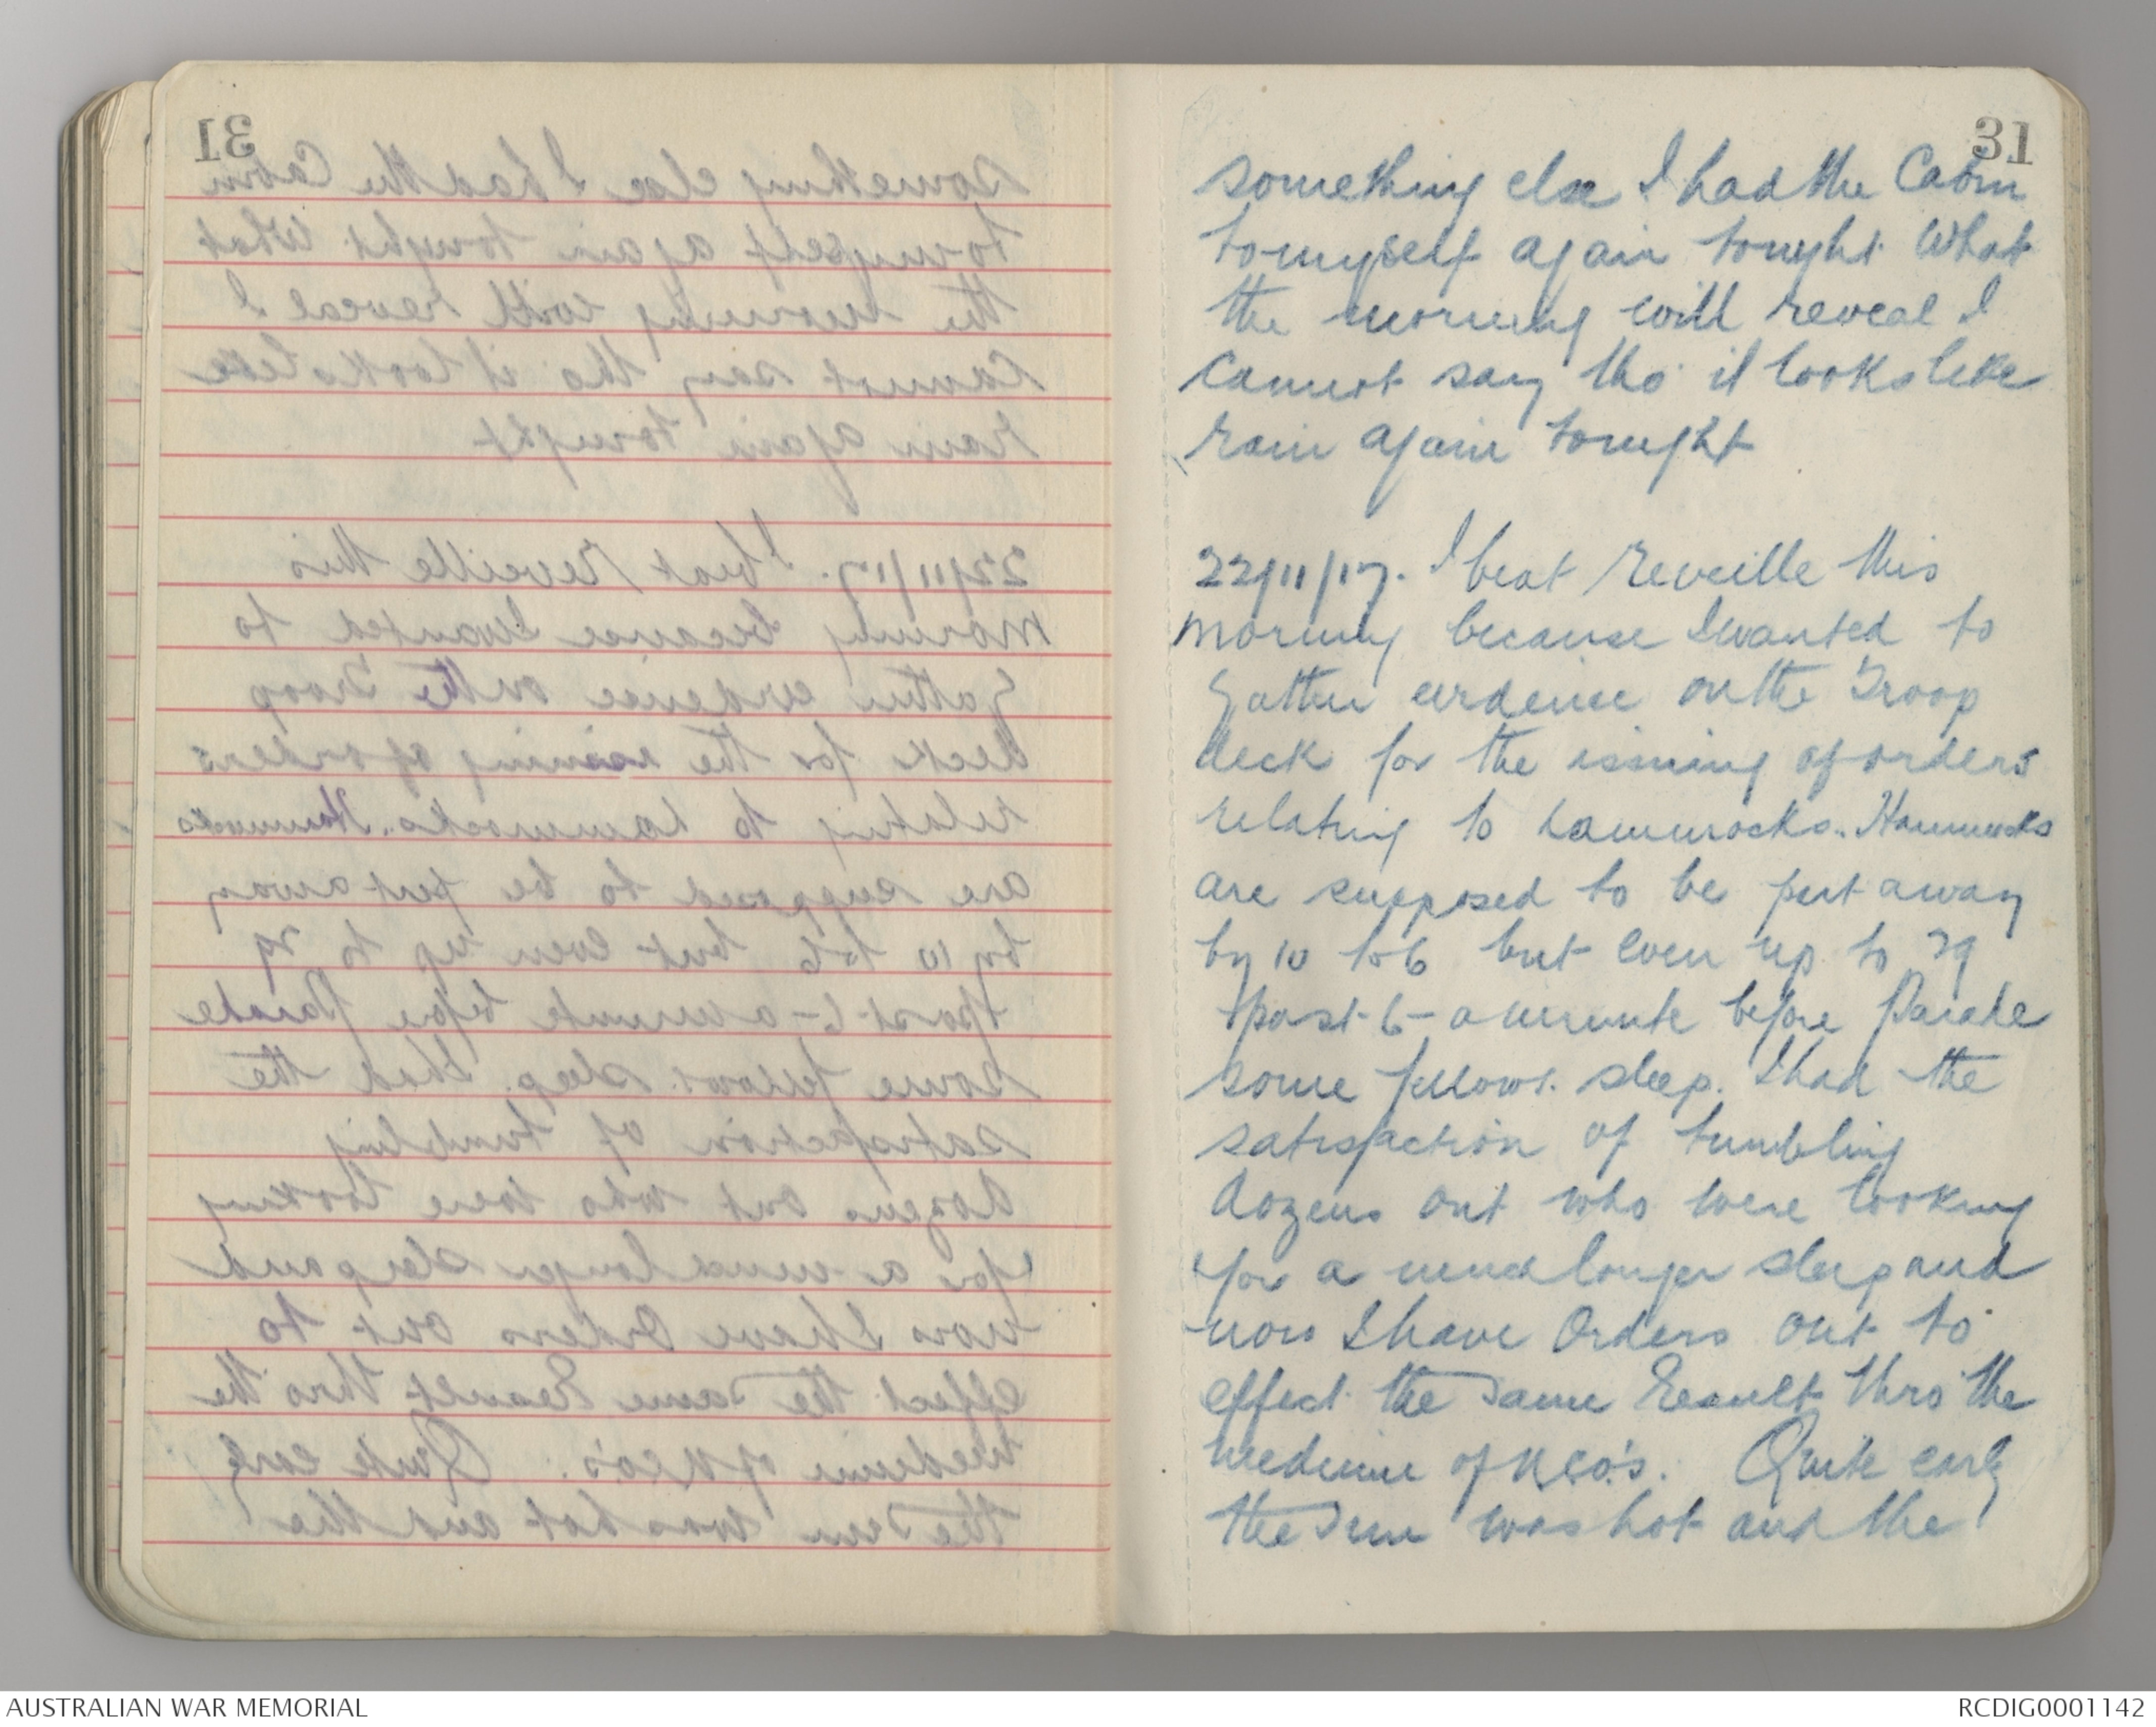 31
something else I had the Cabin
to myself again tonight. What
the morning will reveal I
cannot say tho' it looks like
rain again tonight
22/11/17. I beat Reveille this
morning because I wanted to
gather evidence on the Troop
deck for the issuing of orders
relating to hammocks. Hammocks
are supposed to be put away
by 10 to 6 but even up to 29
past 6 - a minute before Parade
some fellows sleep. I had the
satisfaction of tumbling
dozens out who were looking
for a much longer sleep and
now I have Orders out to
effect the same Result thro the
medium of NCO's. Quite early
the sun was hot and the
AUSTRALIAN WAR MEMORIAL
RCDIG0001142